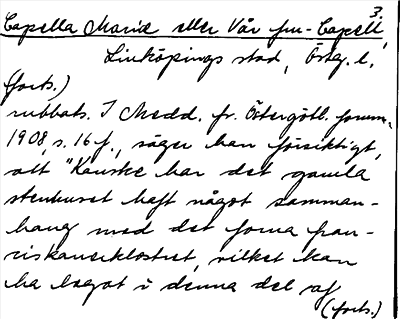 3.
Capella Marie eller Vår fru-Capell,
Linköpings stad, Österg. l.
(forts.)
rubbats. I Medd. fr. Östergötl. fornm.
1908, s. 16 f., säger han försiktigt,
att "Kanske har det gamla
stenhuset haft något samman-
hang med det forna fran-
ciskanerklostret, vilket kan
ha legat i denna del af
(forts.)